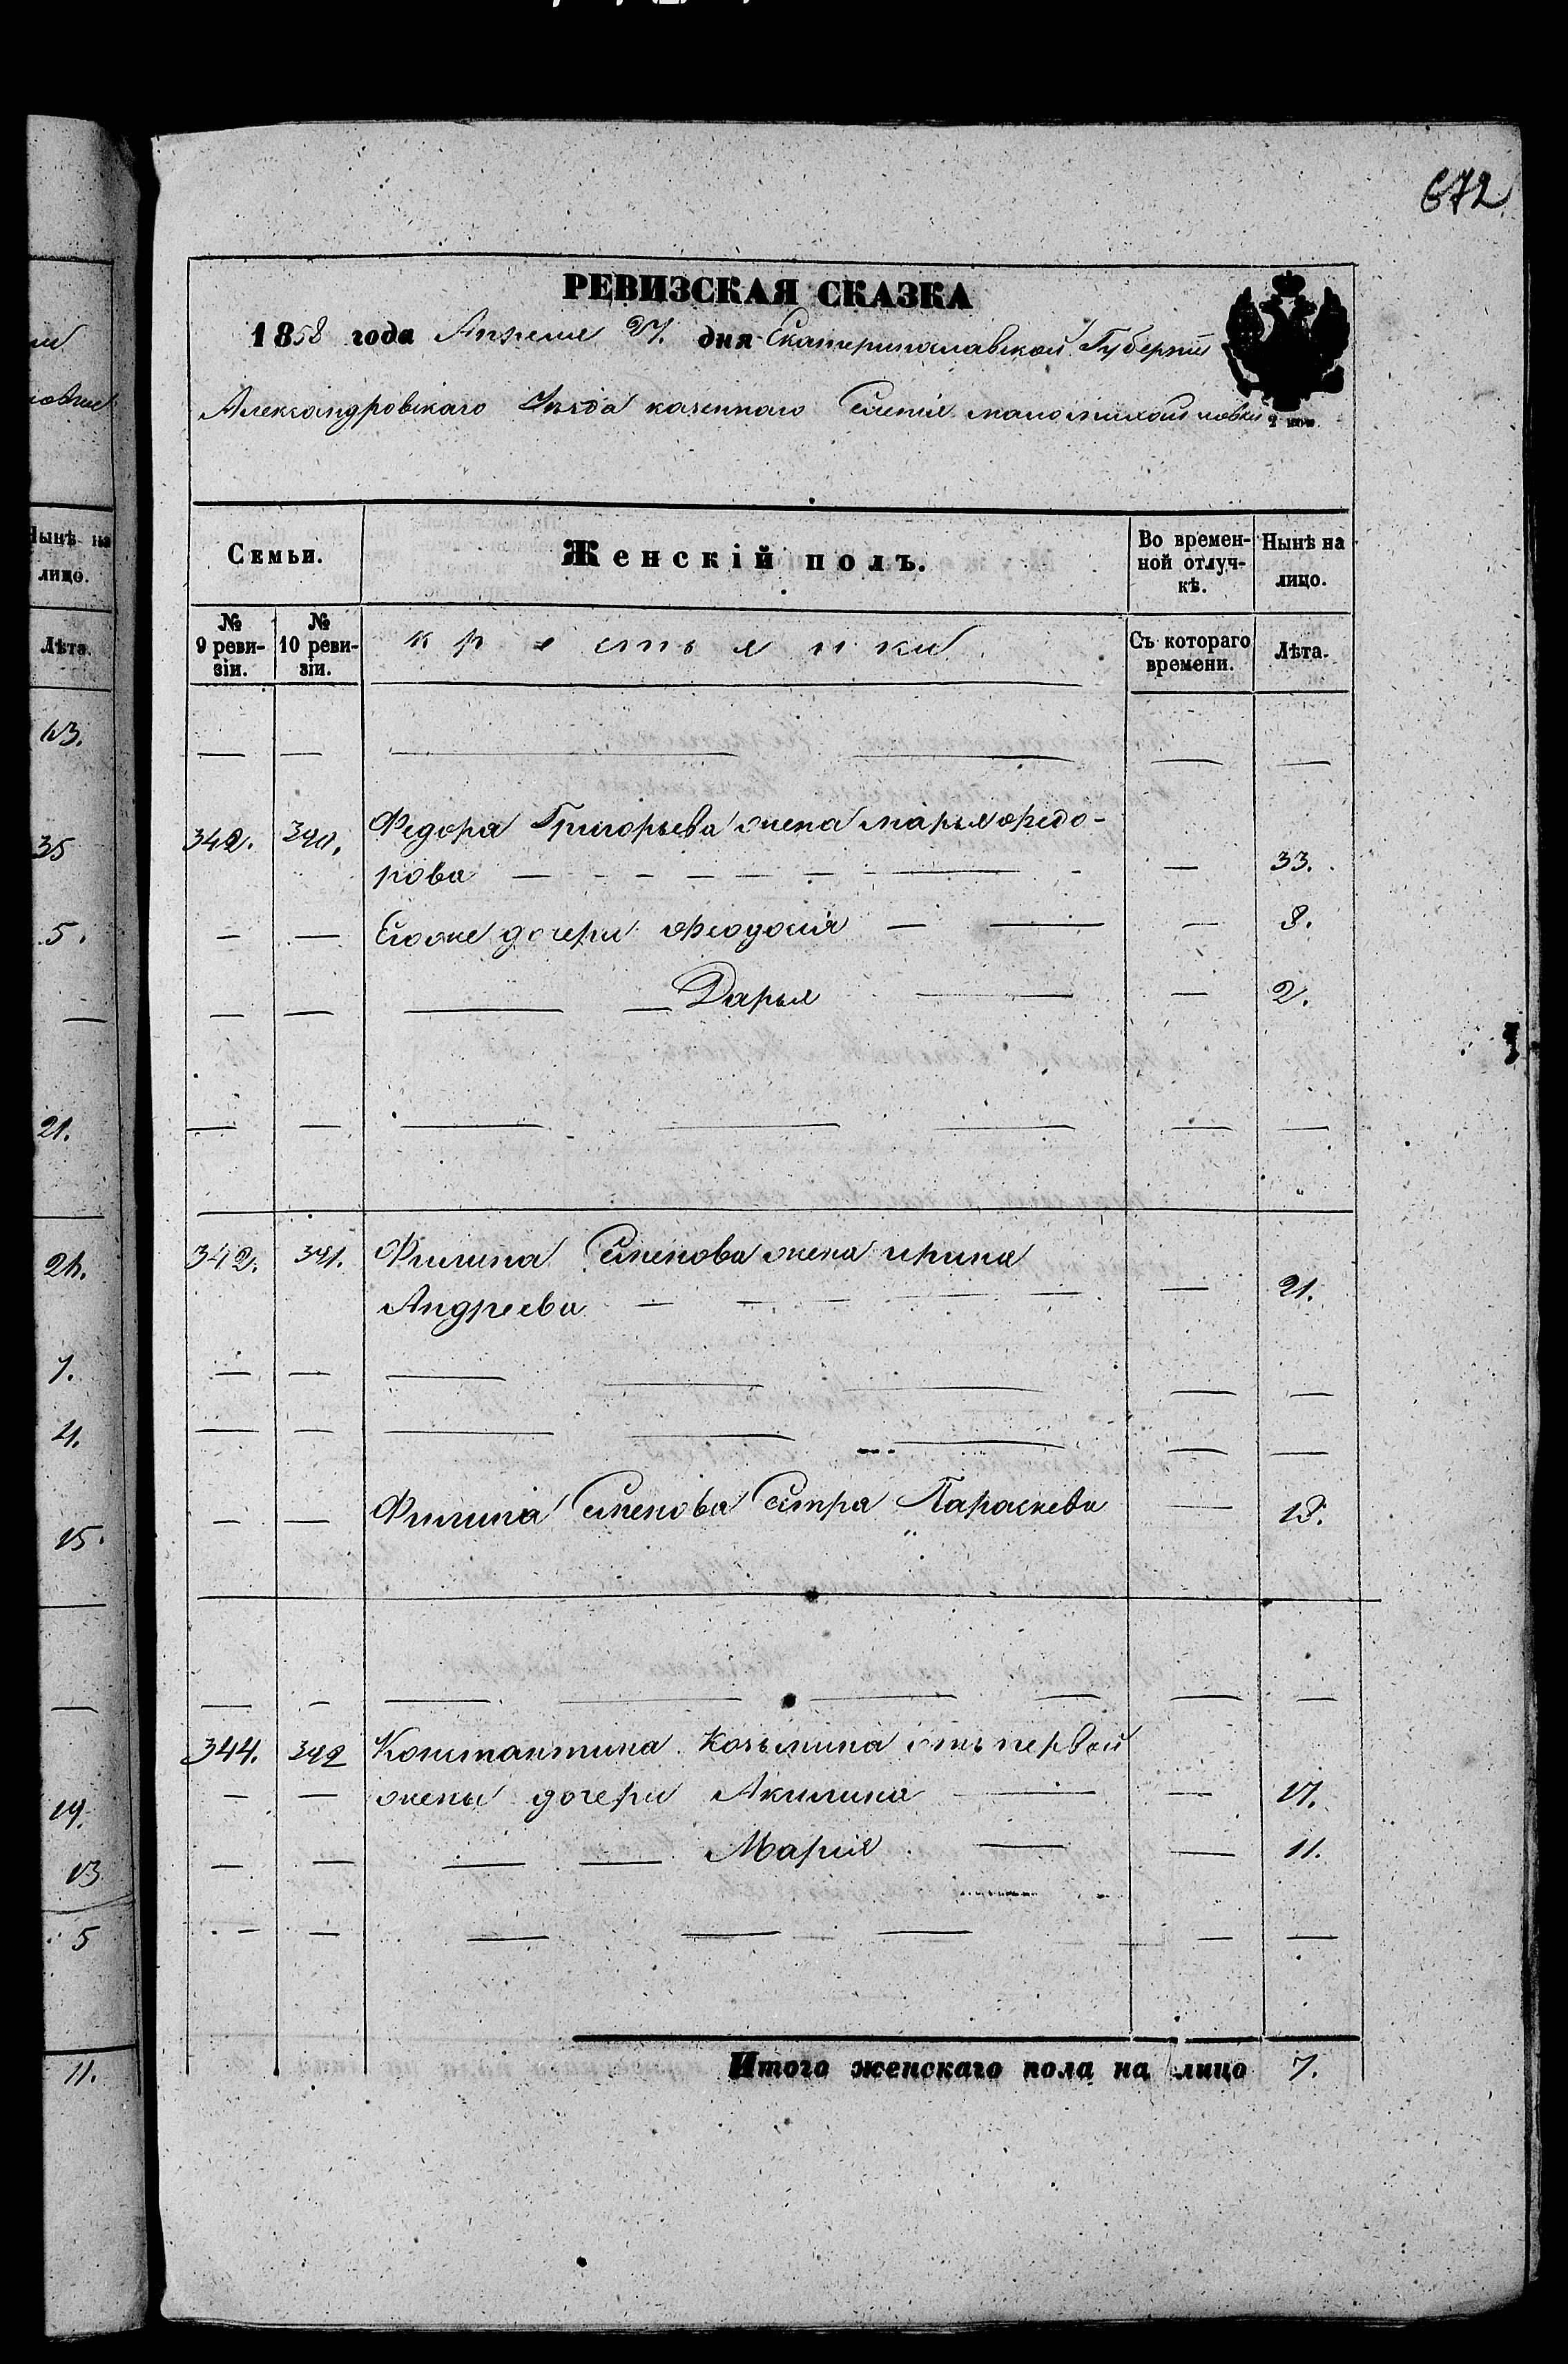 672
РЕВИЗСКАЯ СКАЗКА
1858 года Апреля 27. дня Екатеринославской Губернiи
Александровскаго Уѣзда казеннаго Селенiя маломихайловки 2 коп.
Семьи. Женскiй полъ. Во временной отлучкѣ. Нынѣ на лицо.
№ 9 ревизiи. № 10 ревизiи. крестьянки Съ котораго времени. Лѣта.
342. 390. Федора Григорьева жена марья Федо-
рова — 33.
Егоже дочери Феодосiя — 8.
Дарья — 2.
342. 391. Филипа Семенова жена ирина
Андреева — 21.
Филипа Семенова Сестра Параскева — 18.
344. 392 Константина Козьмина отъ первой
жены дочери Акилина — 17.
Марiя — 11.
Итого женскаго пола на лицо 7.
Нынѣ на
лицо.
Лѣта.
13.
35
5.
21.
24.
7.
4.
15.
19.
13
5
11.